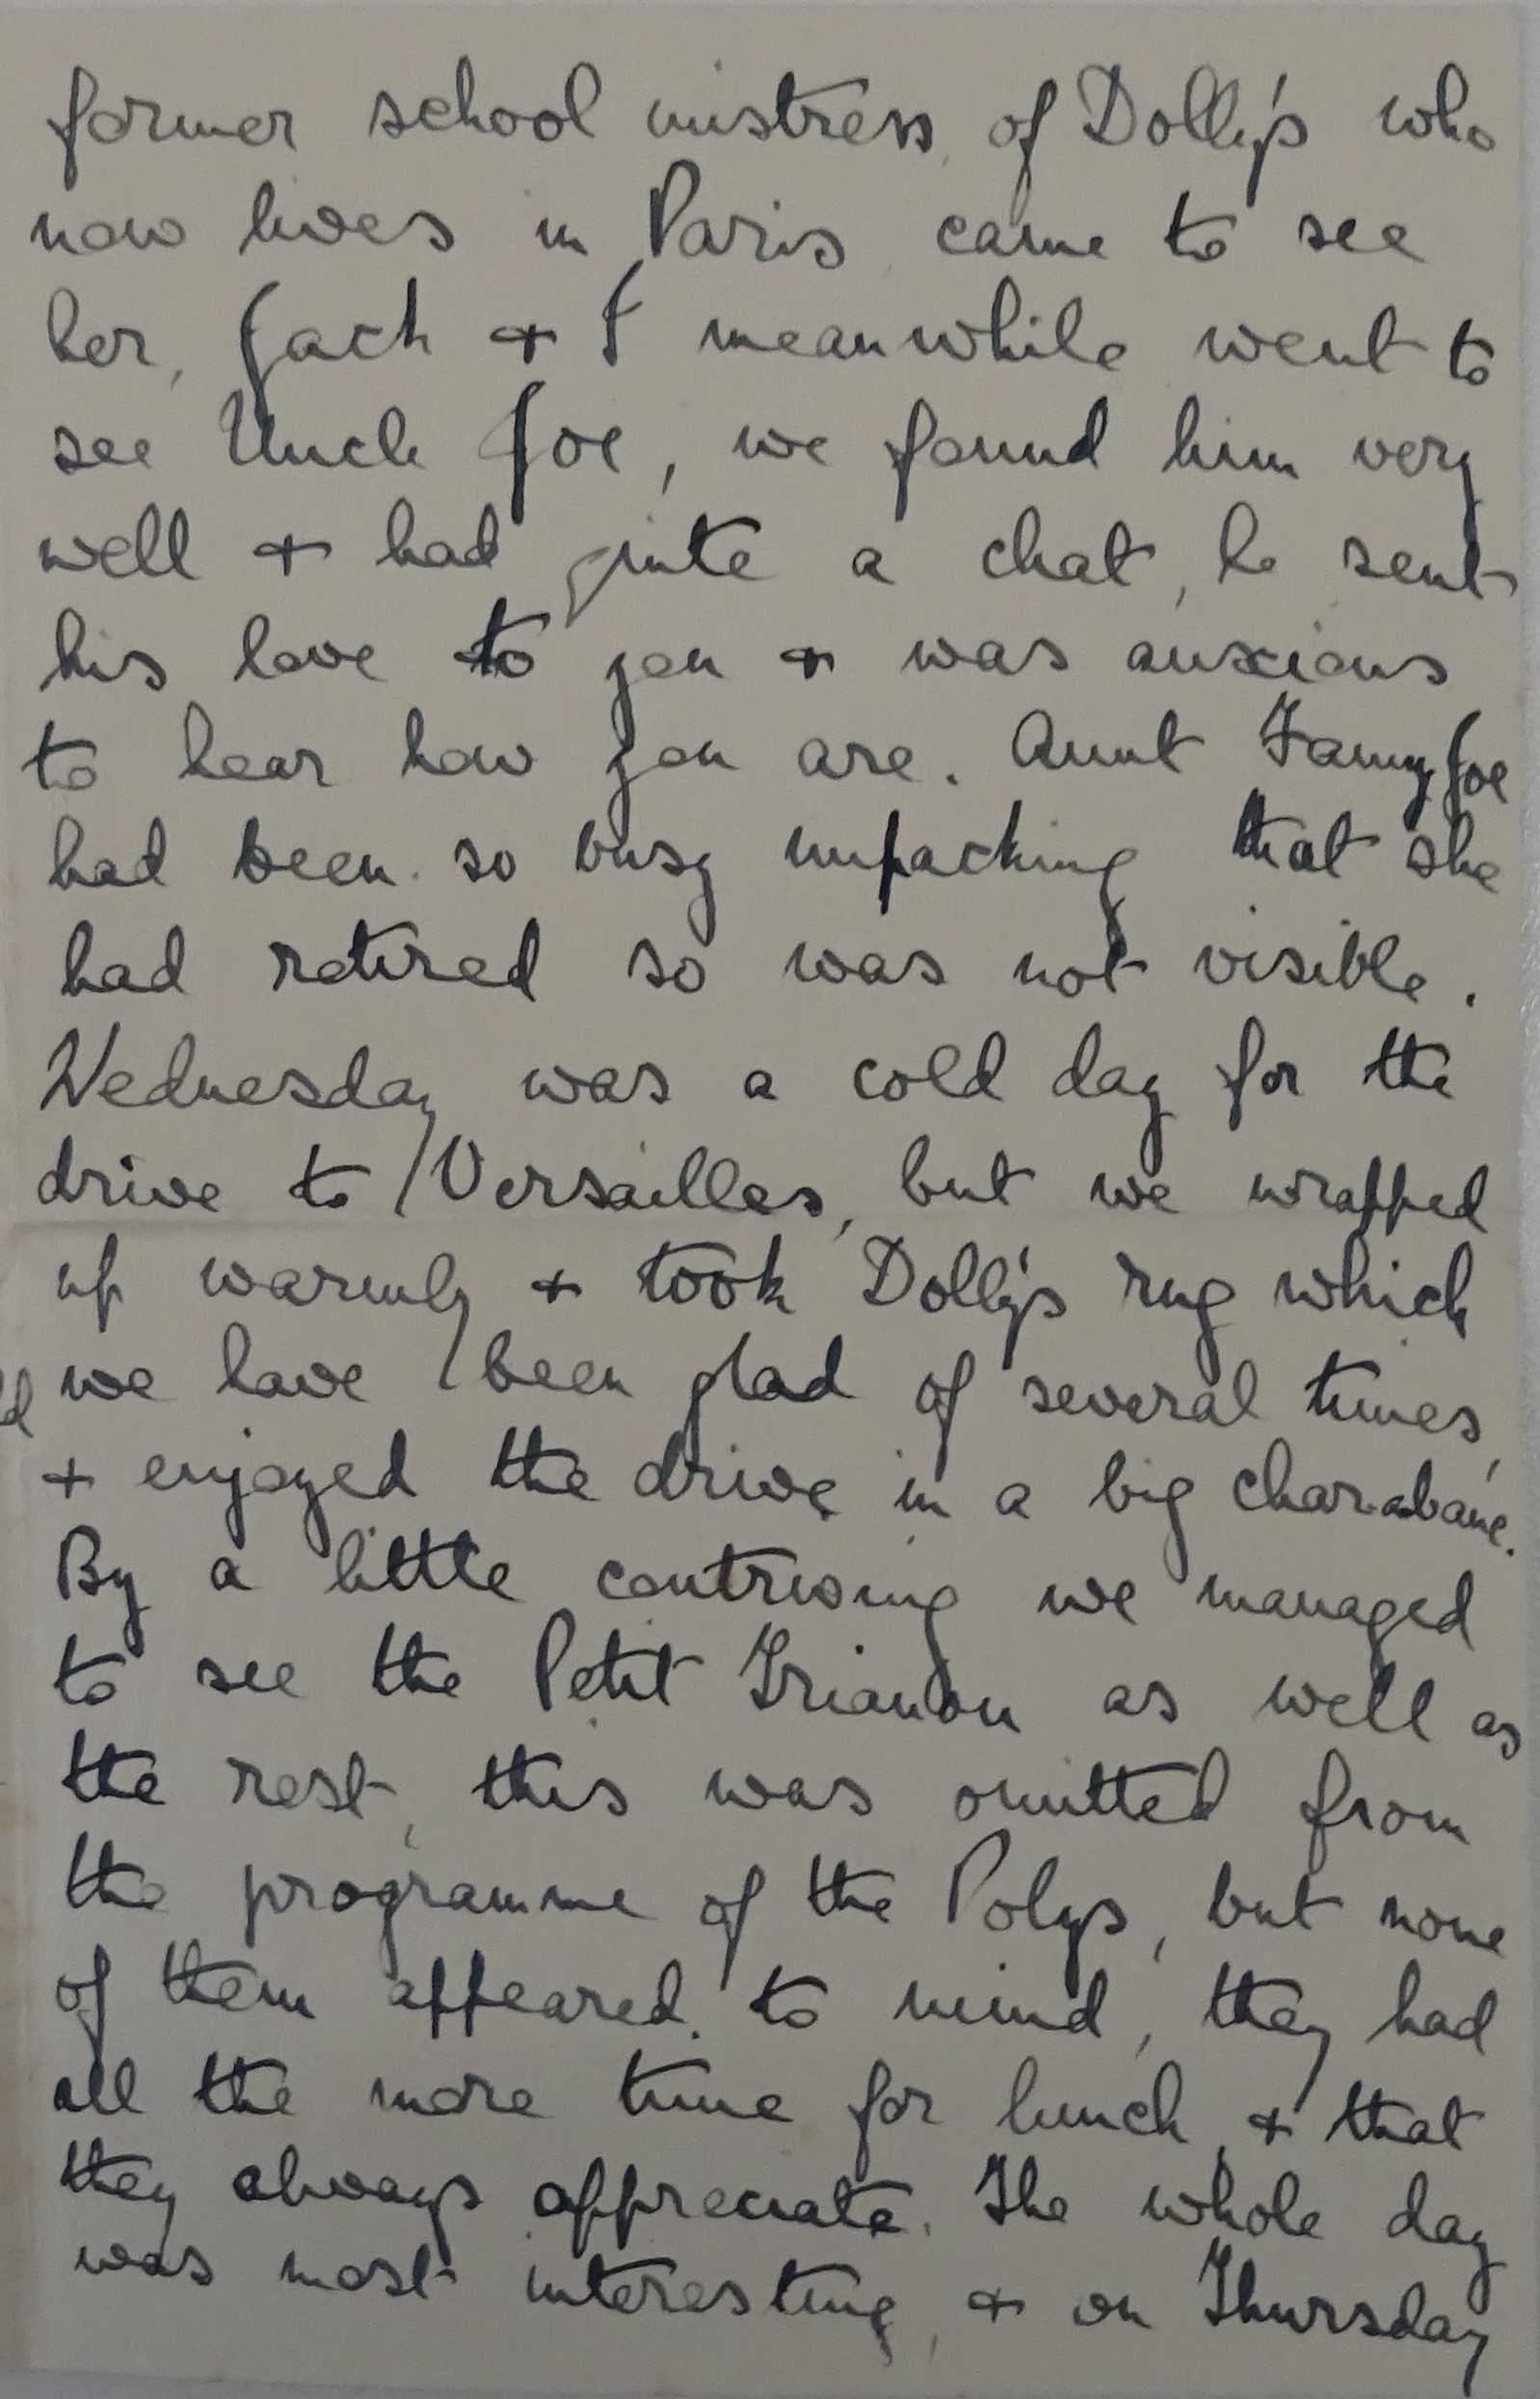 former school mistress of Dolly's who
now lives in Paris came to see
her, Jack + I meanwhile went to
see Uncle Joe, we found him very
well + had quite a chat, he sent
his love to you + was anxious
to hear how you are. Aunt Fanny Joe
had been so busy unpacking that she
had retired so was not visible.
Wednesday was a cold day for the
drive to Versailles, but we wrapped
up warmly + took Dolly's rug which
we have been glad of several times,
+ enjoyed the drive in a big charabanc.
By a little contriving we managed
to see the Petit Trianon as well as
the rest, this was omitted from
the programme of the Polys, but none
of them appeared to mind, they had
all the more time for lunch, + that
they always appreciate. The whole day
was most interesting, + on Thursday